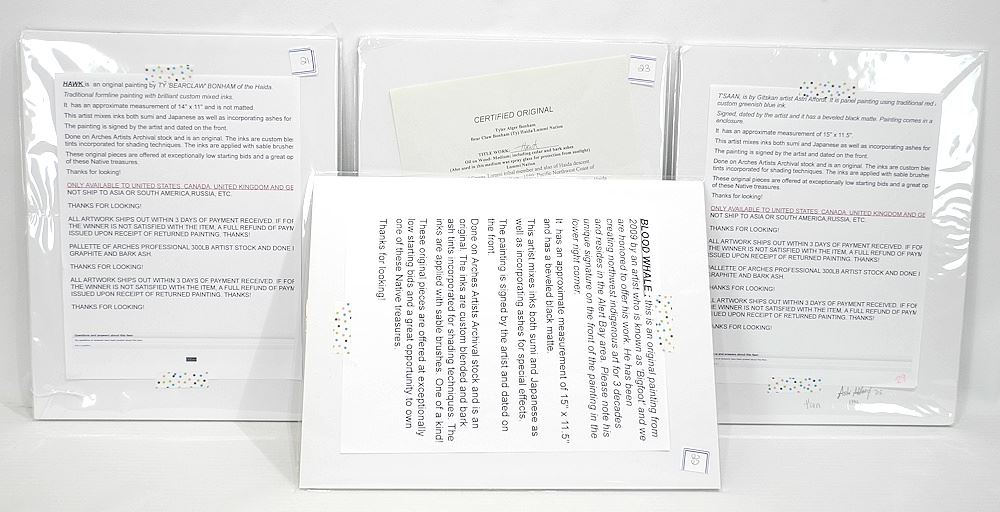 21
HAWK is an original painting by TY 'BEARCLAW' BONHAM of the Haida.
Traditional formline painting with brilliant custom mixed inks.
It has an approximate measurement of 14" x 11" and is not matted.
This artist mixes both sumi and Japanese as well as incorporating ashes for
The painting is signed by the artist and dated on the front.
Done on Arches Artists Archival stock and is an original. The inks are custom ble
tints incorporated for shading techniques. The inks are applied with sable brushe
These original pieces are offered at exceptionally low starting bids and a great op
of these Native treasures.
Thanks for looking!
ONLY AVAILABLE TO UNITED STATES, CANADA, UNITED KINGDOM AND GE
NOT SHIP TO ASIA OR SOUTH AMERICA,RUSSIA, ETC.
THANKS FOR LOOKING!
ALL ARTWORK SHIPS OUT WITHIN 3 DAYS OF PAYMENT RECEIVED. IF FOR
THE WINNER IS NOT SATISFIED WITH ITEM, A FULL REFUND OF PAYM
ISSUED UPON RECEIPT OF RETURNED PAINTING. THANKS!
PALLETTE OF ARCHES PROFESSIONAL 300LB ARTIST STOCK AND DONE I
GRAPHITE AND BARK ASH.
THANKS FOR LOOKING!
ALL ARTWORK SHIPS OUT WITHIN 3 DAYS OF PAYMENT RECEIVED. IF FOR
THE WINNER IS NOT SATISFIED WITH ITEM, A FULL REFUND OF PAYM
ISSUED UPON RECEIPT OF RETURNED PAINTING. THANKS!
THANKS FOR LOOKING!
Questions and answers about this item
23
CERTIFIED ORIGINAL
Tyler Alger Bonham
Bear Claw Bonham (Ty) Haida/Lummi Nation
TITLE WORK:
Oil on Wood: Medium; including cedar and bark ashes
(Also used in this medium was spray glaze for protection from sunlight)
Lummi Nation
Lummi tribal member and also of Haida descent
Pacific Northwest Coast of
T'SAAN, is by Gitskan artist Ashi Afford. It is panel painting using traditional red
custom greenish blue ink.
Signed, dated by the artist and it has a beveled black matte. Painting comes in a
enclosure.
It has an approximate measurement of 15" x 11.5".
This artist mixes both sumi and Japanese as well as incorporating ashes for
The painting is signed by the artist and dated on the front.
Done on Arches Artists Archival stock and is an original. The inks are custom
tints incorporated for shading techniques. The inks are applied with sable brushe
These original pieces are offered at exceptionally low starting bids and a great op
of these Native treasures.
Thanks for looking!
ONLY AVAILABLE TO UNITED STATES, CANADA, UNITED KINGDOM AND GE
NOT SHIP TO ASIA OR SOUTH AMERICA,RUSSIA, ETC.
THANKS FOR LOOKING!
ALL ARTWORK SHIPS OUT WITHIN 3 DAYS OF PAYMENT RECEIVED. IF FOR
THE WINNER IS NOT SATISFIED WITH ITEM, A FULL REFUND OF PAYM
ISSUED UPON RECEIPT OF RETURNED PAINTING. THANKS!
PALLETTE OF ARCHES PROFESSIONAL 300LB ARTIST STOCK AND DONE I
GRAPHITE AND BARK ASH.
THANKS FOR LOOKING!
ALL ARTWORK SHIPS OUT WITHIN 3 DAYS OF PAYMENT RECEIVED. IF FOR
THE WINNER IS NOT SATISFIED WITH ITEM, A FULL REFUND OF PAYM
ISSUED UPON RECEIPT OF RETURNED PAINTING. THANKS!
THANKS FOR LOOKING!
and answers about this item
BLOOD WHALE : this is an original painting from
2009 by an artist who is known as 'Bigfoot' and we
are honored to offer his work. He has been
creating northwest indigenous art for 3 decades
and resides in the Alert Bay area. Please note his
unique signature on the front of the painting in the
lower right corner.
It has an approximate measurement of 15" x 11.5"
and has a beveled black matte.
This artist mixes inks both sumi and Japanese as
well as incorporating ashes for special effects.
The painting is signed by the artist and dated on
the front.
Done on Arches Artists Archival stock and is an
original. The inks are custom blended and bark
ash tints incorporated for shading techniques. The
inks are applied with sable brushes. One of a kind!
These original pieces are offered at exceptionally
low starting bids and a great opportunity to own
one of these Native treasures.
Thanks for looking!